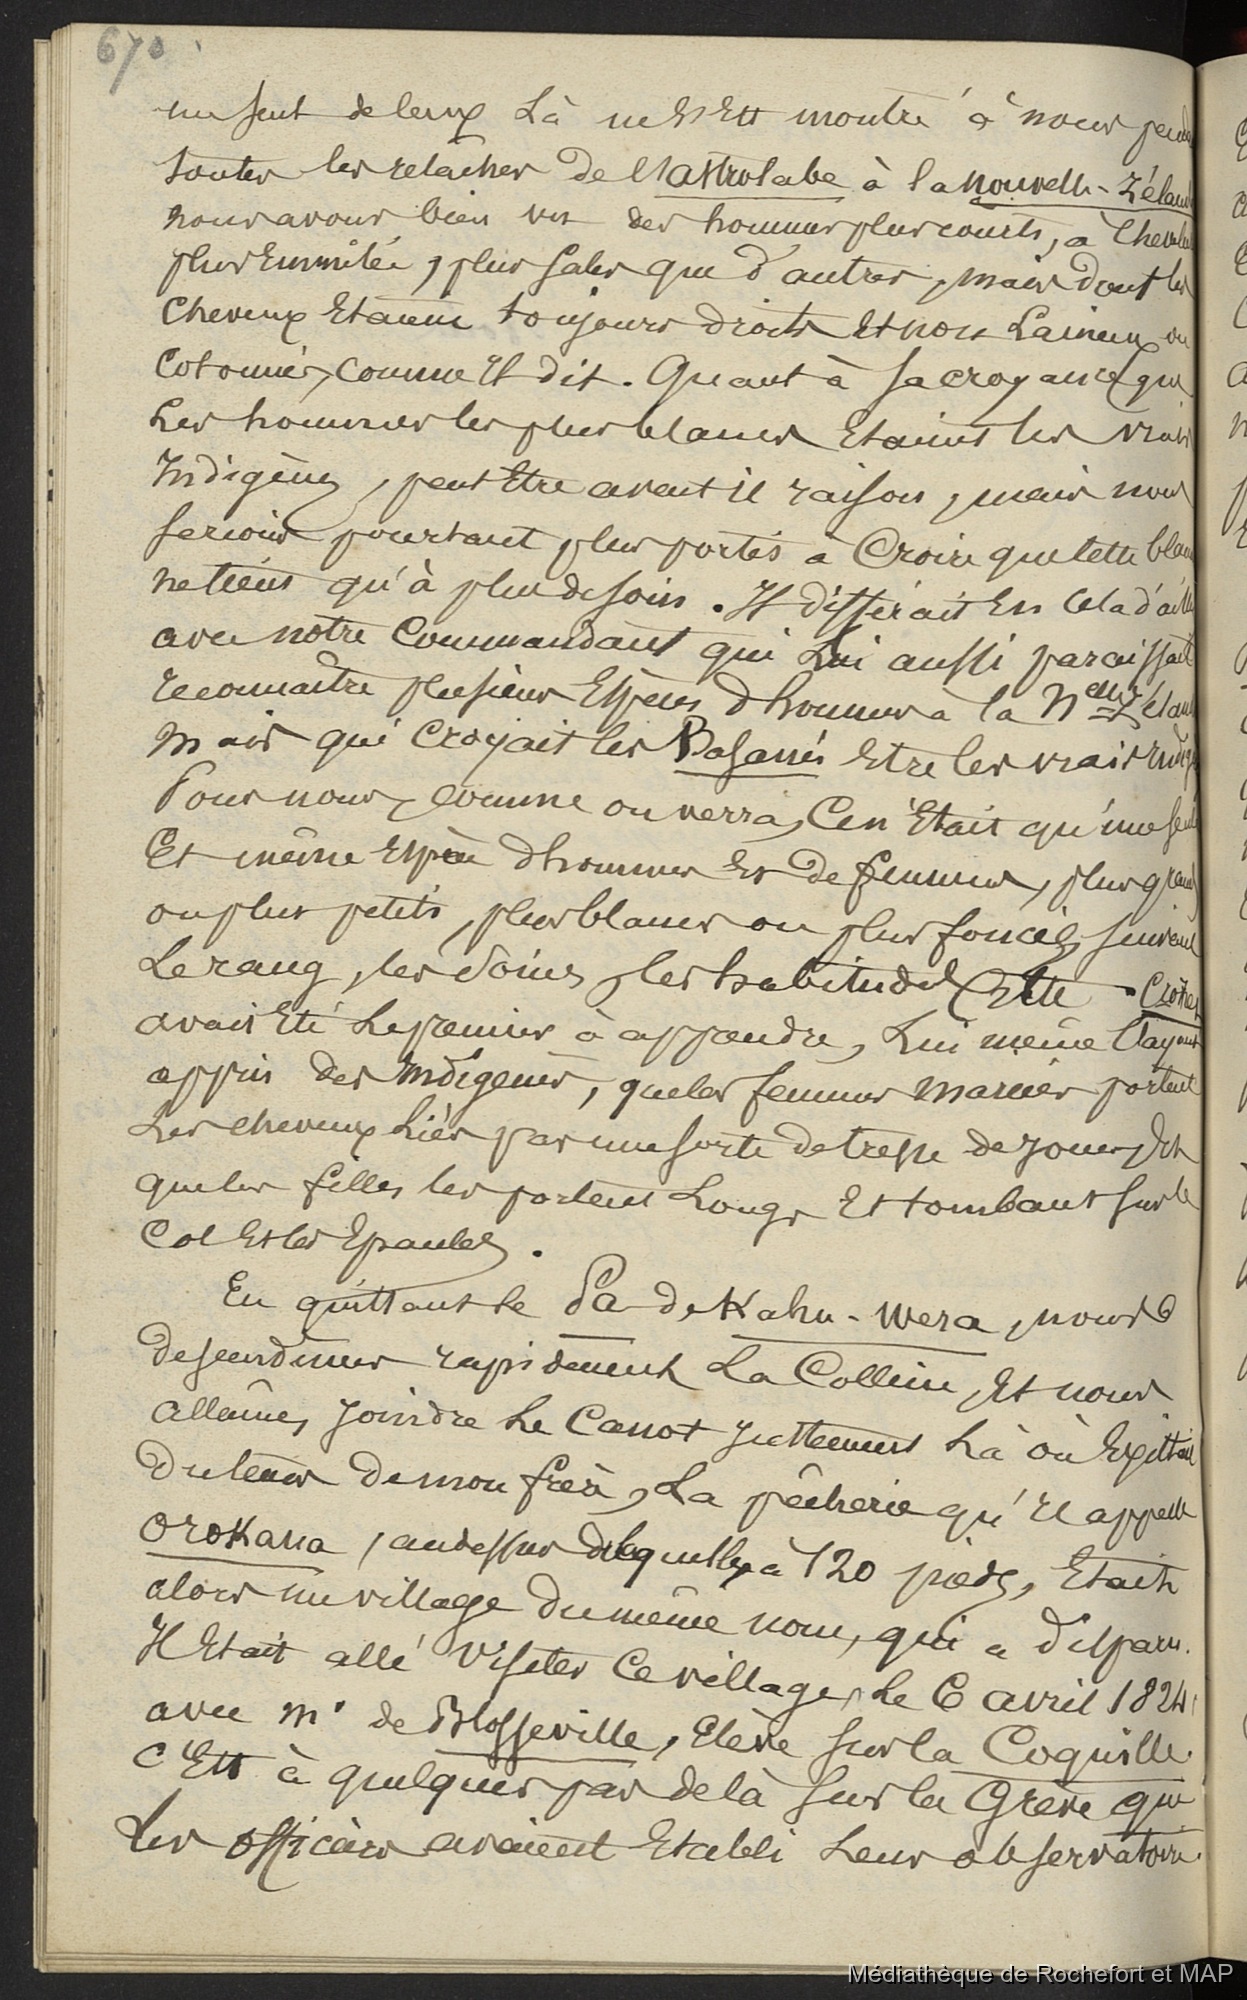 670
un seul de ceux là ne s'est montré à nous pend
toutes les relâches de l'astrolabe à la nouvelle-Zélan
nous avons bien vu des hommes plus courts, à cheveux
plus Emmêlés, plus sales que d'autres, mais dont les
Cheveux Etaient toujours droits Et non Laineux ou
Cotonnés, comme Il dit. Quant à sa croyance que
Les hommes les plus blancs Etaient les vrais
Indigènes, peut Etre avait il raison, mais nous
serions pourtant plus portés à Croire que cette blan
ne tient qu'à plus de soins. Il différait En Cela d'aill
avec notre Commandant qui Lui aussi paraissait
reconnaître plusieurs Espèces d'hommes à la Nelle Zélan
Mais qui Croyait les Basanés Etre les vrais Indig
Pour nous, comme on verra, Ce n'Etait qu'une seule
Et même Espèce d'hommes Et de femmes, plus grands
ou plus petits, plus blancs ou plus foncés, suivant
Le rang, les Soins, les habitudes. Crozet
avait Eté Le premier à apprendre, Lui même l'ayant
appris des Indigènes, que les femmes Mariées portent
Les cheveux Liés par une sorte de tresse de joncs, Et
que les filles les portent Longs Et tombant sur le
Col Et les Epaules.
En quittant le Pa de Kahu-Wera, nous
descendîmes rapidement La Colline, Et nous
allâmes joindre Le Canot justement Là où Existait
du tems de mon frère, La pêcherie qu'Il appelle
Orokawa, au dessus de laquelle, à 120 pieds, Etait
alors un village du même nom, qui a disparu.
Il Etait allé visiter Ce village, Le 6 avril 1824
avec Mr de Blosseville, Elève sur la Coquille.
C'Est à quelques pas de là sur la Grève que
Les officiers avaient Etabli Leur observatoire.
Médiathèque de Rochefort et MAP